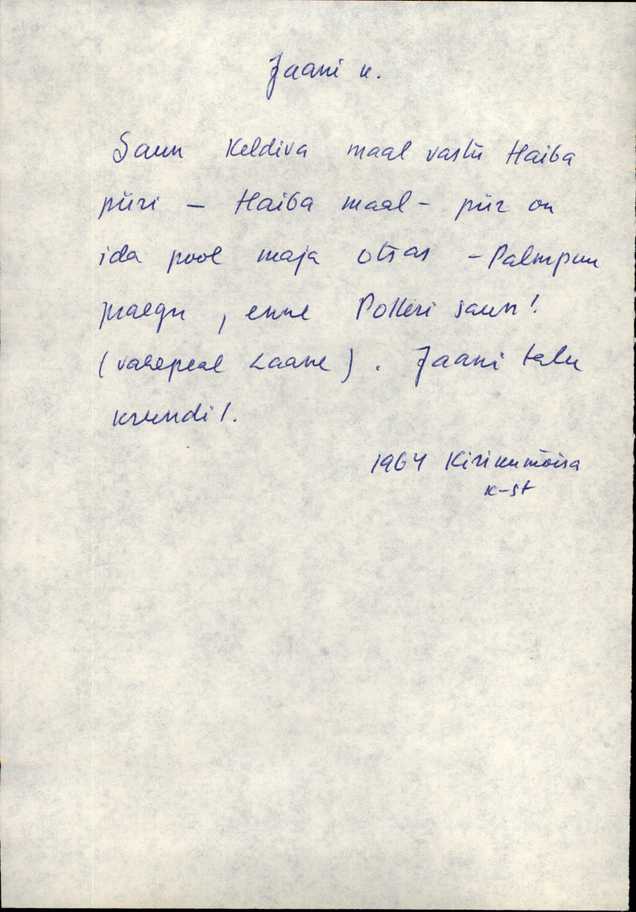 Jaani k.
Saun Keldiva maal vastu Haiba
piiri - Haiba maal - piir on
ida pool maja otsas - Palmpuu
praegu, enne Polleri saun!
(vahepeal Laane). Jaani talu
krundil.
1964 Kirikumõisa
k-st